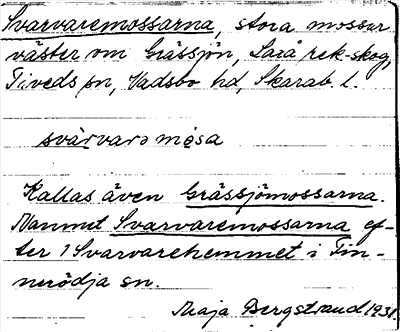 Svarvaremossarna, stora mossar
väster om Grässjön, Sarå rek-skog,
Tiveds sn, Vadsbo hd, Skarab. l.
svàrvarə mósa
Kallas även Grässjömossarna.
Namnet Svarvaremossarna ef-
ter 1 Svarvarehemmet i Fin-
nerödja sn.
Maja Bergstrand 1931.